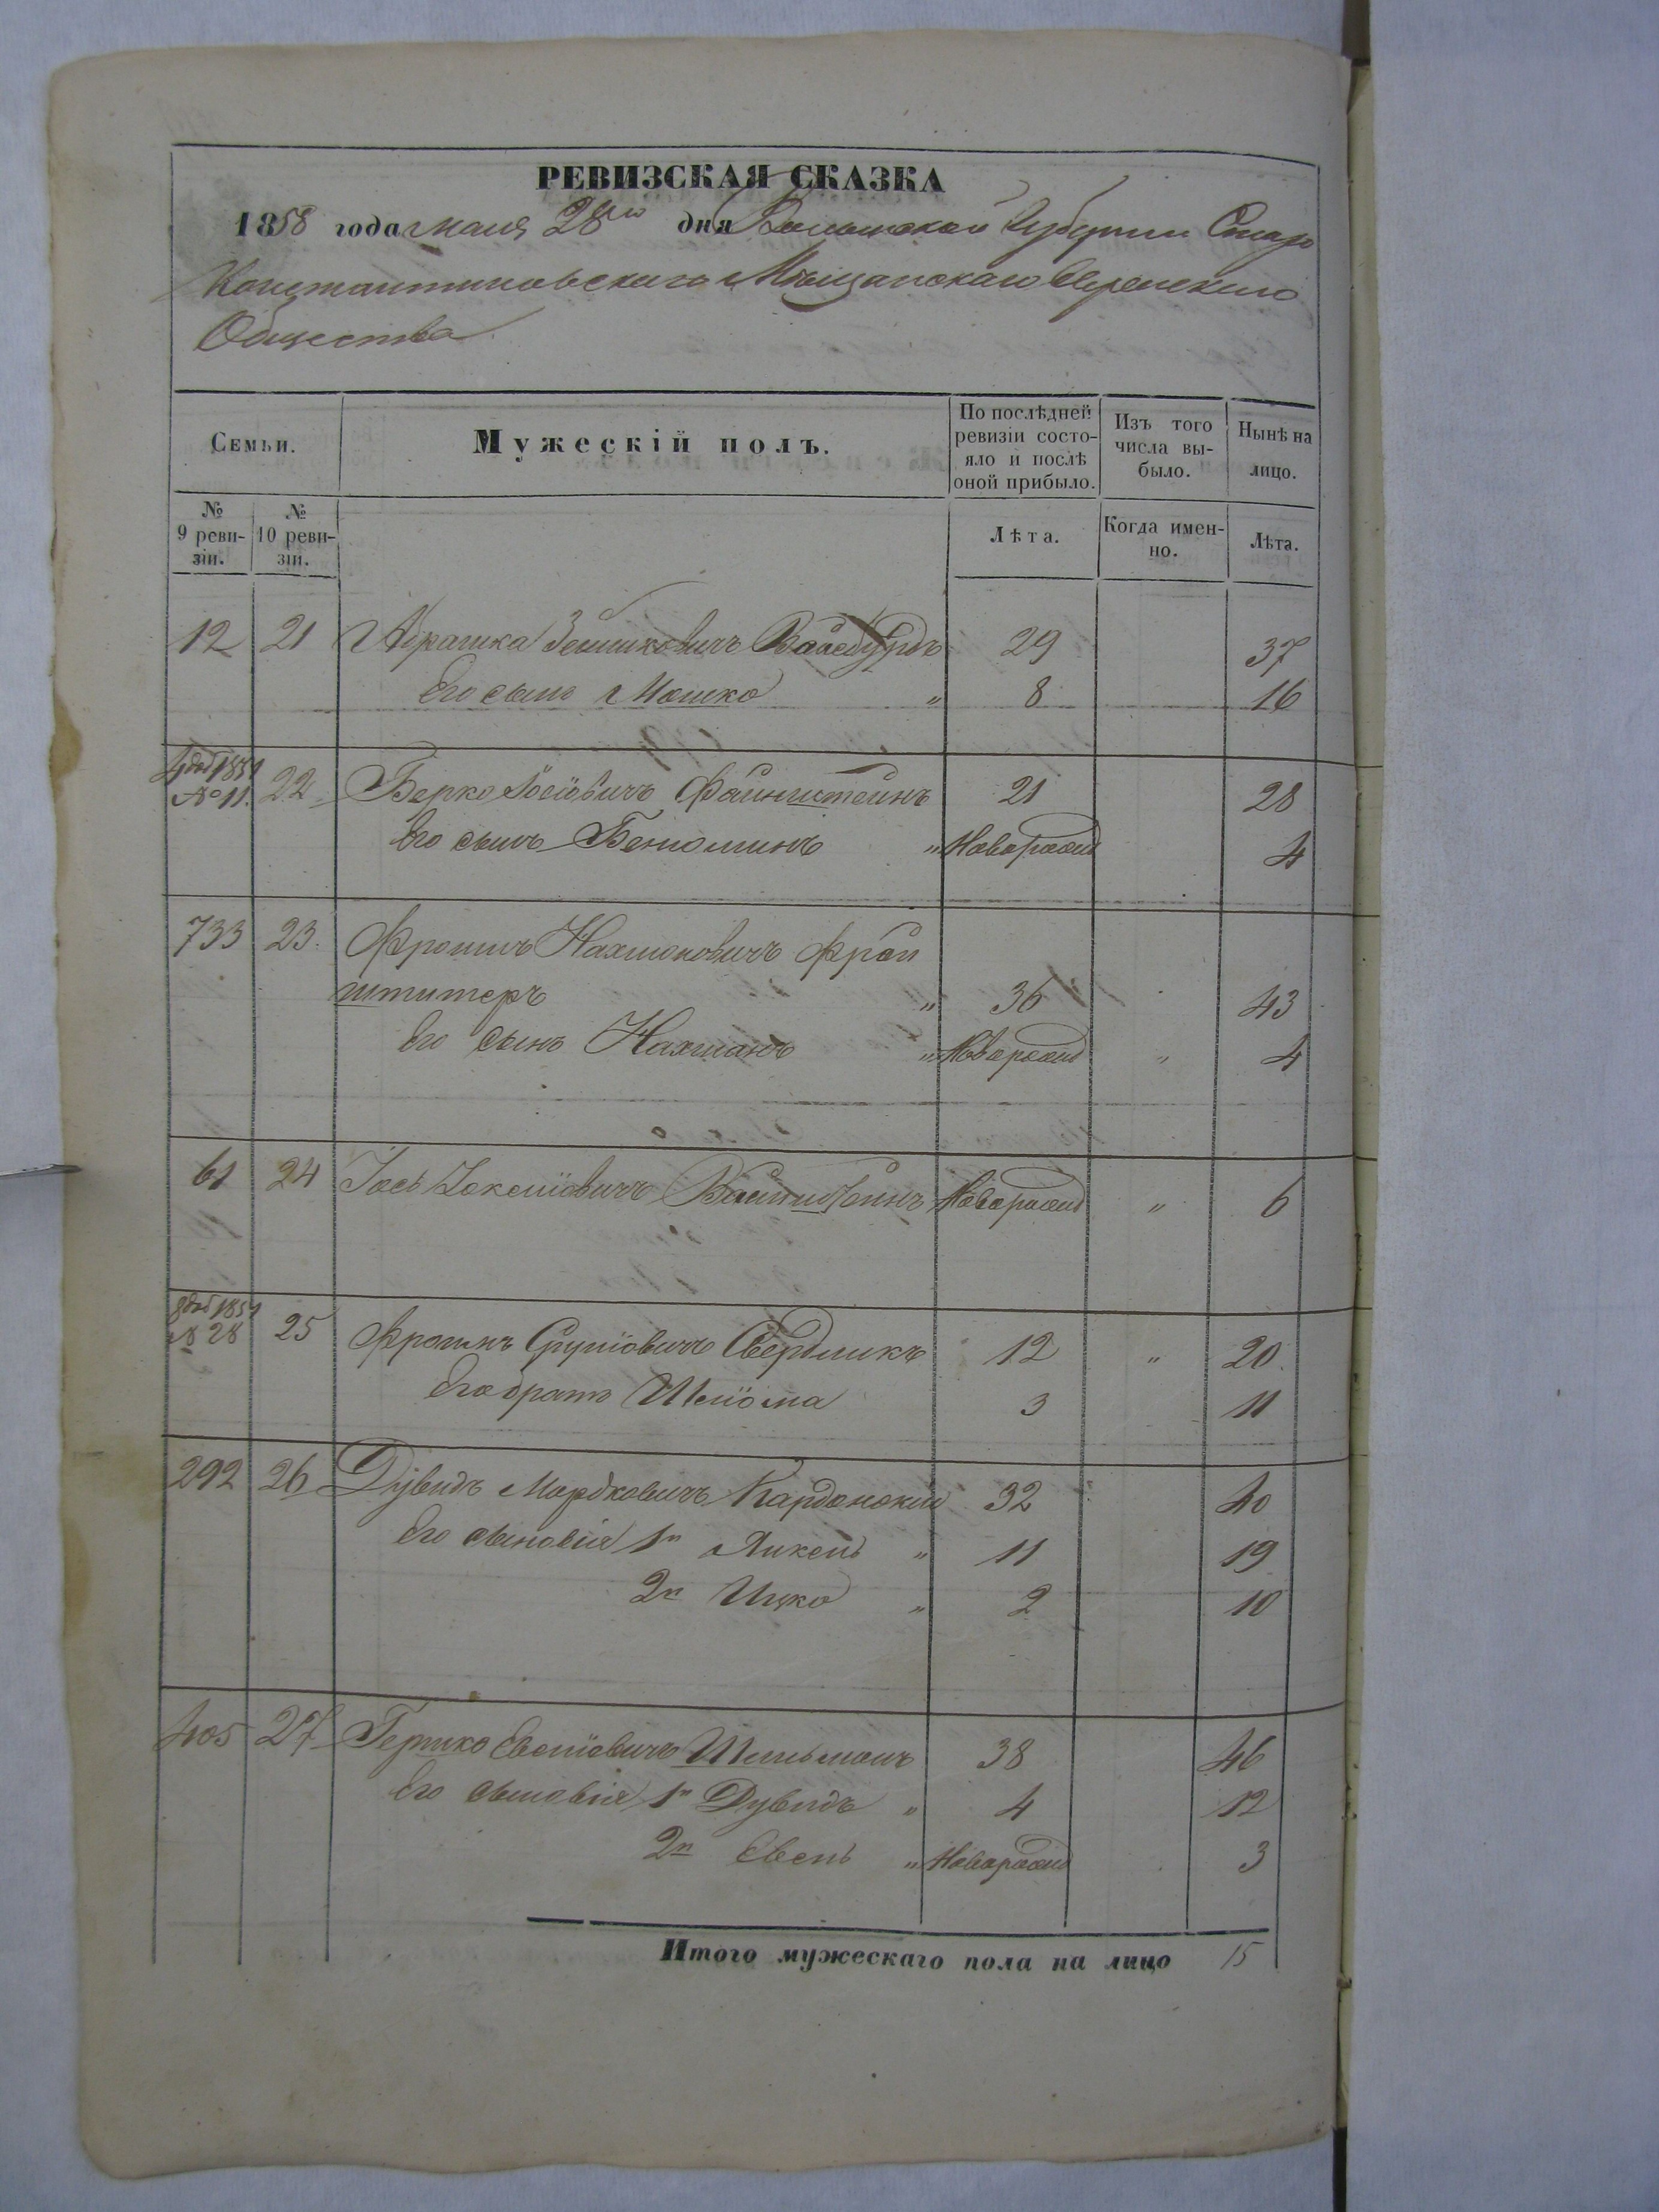 РЕВИЗСКАЯ СКАЗКА
1858 года мая 28го дня Волынской Губернии Старо
Константиновского Мѣщанскаго Еврейскаго
Общества
Семьи. Мужескій полъ. По послѣдней ревизіи состояло и послѣ оной прибыло. Изъ того числа выбыло. Нынѣ на лицо.
№ 9 ревизіи. № 10 ревизіи. Лѣта. Когда именно. Лѣта.
12 21 Абрашка Вайсбурдъ 29 37
Его сынъ Мошко " 8 16
4 доб 1851 № 11. 22 Берко Іосіовичъ Файнштейнъ 21 28
Его сынъ Бениоминъ " Новорожд 4
733 23. Фроимъ Нахмановичъ Фрай
штитеръ " 36 43
Его сынъ Нахманъ " Новорожд " 4
61 24 Іось Вайнштейнъ Новорожд " 6
8 доб 1851 № 28 25 Фроимъ Сруліовичъ Свердликъ 12 " 20
Его братъ Шліома 3 11
292 26 Дувидъ Мордковичъ Кардонскій 32 40
Его сыновія 1й Янкель " 11 19
2й Ицко " 2 10
405 27 Гершко Шильманъ 38 46
Его сыновія 1й Дувидъ " 4 12
2й " Новорожд 3
Итого мужескаго пола на лицо 15